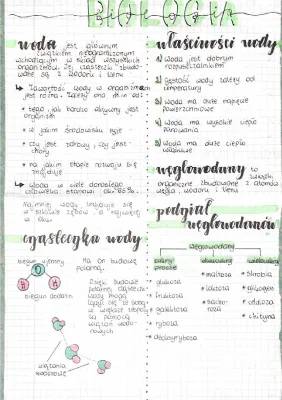 BIOLOGIA
woda jest głównym
związkiem nieorganicznym
wchodzącym w skład wszystkich
organizmów. Jej cząsteczki zbudo-
wane są z wodoru i tlenu
Zawartość wody w organizmach
jest różna. Zależy ona m.in. od:
• tego jak bardzo aktywny jest
organizm
• w jakim środowisku żyje
• czy jest zdrowy, czy jest
chory
• na jakim etapie rozwoju się
znajduje
woda w ciele dorosłego
człowieka stanowi ok. 65%.
Najmniej wody znajduje się
w szkliwie zębów a najwięcej
w oku
cząsteczka wody
biegun ujemny
biegun dodatni
Ma on budowę
polarną.
Dzięki budowie
polarnej cząsteczki
wody mogą
łączyć się ze sobą
w większe
za pomocą
wiązań wodo-
rowych
wiązania
wodorowe
właściwości wody
1) woda jest dobrym
rozpuszczalnikiem
2) Gęstość wody zależy od
temperatury
3) woda ma duże napięcie
powierzchniowe
4) woda ma wysokie ciepło
parowania
5) woda ma duże ciepło
właściwe
węglowodany to związki
organiczne zbudowane z atomów
węgla, wodoru i tlenu
podział
węglowodanów
węglowodany
cukry
proste
dwucukry
wielocukry
• glukoza
• fruktoza
• galaktoza
• ryboza
• deoksyryboza
• maltoza
• laktoza
• sacha-
roza
• skrobia
• glikogen
• celuloza
• chityna